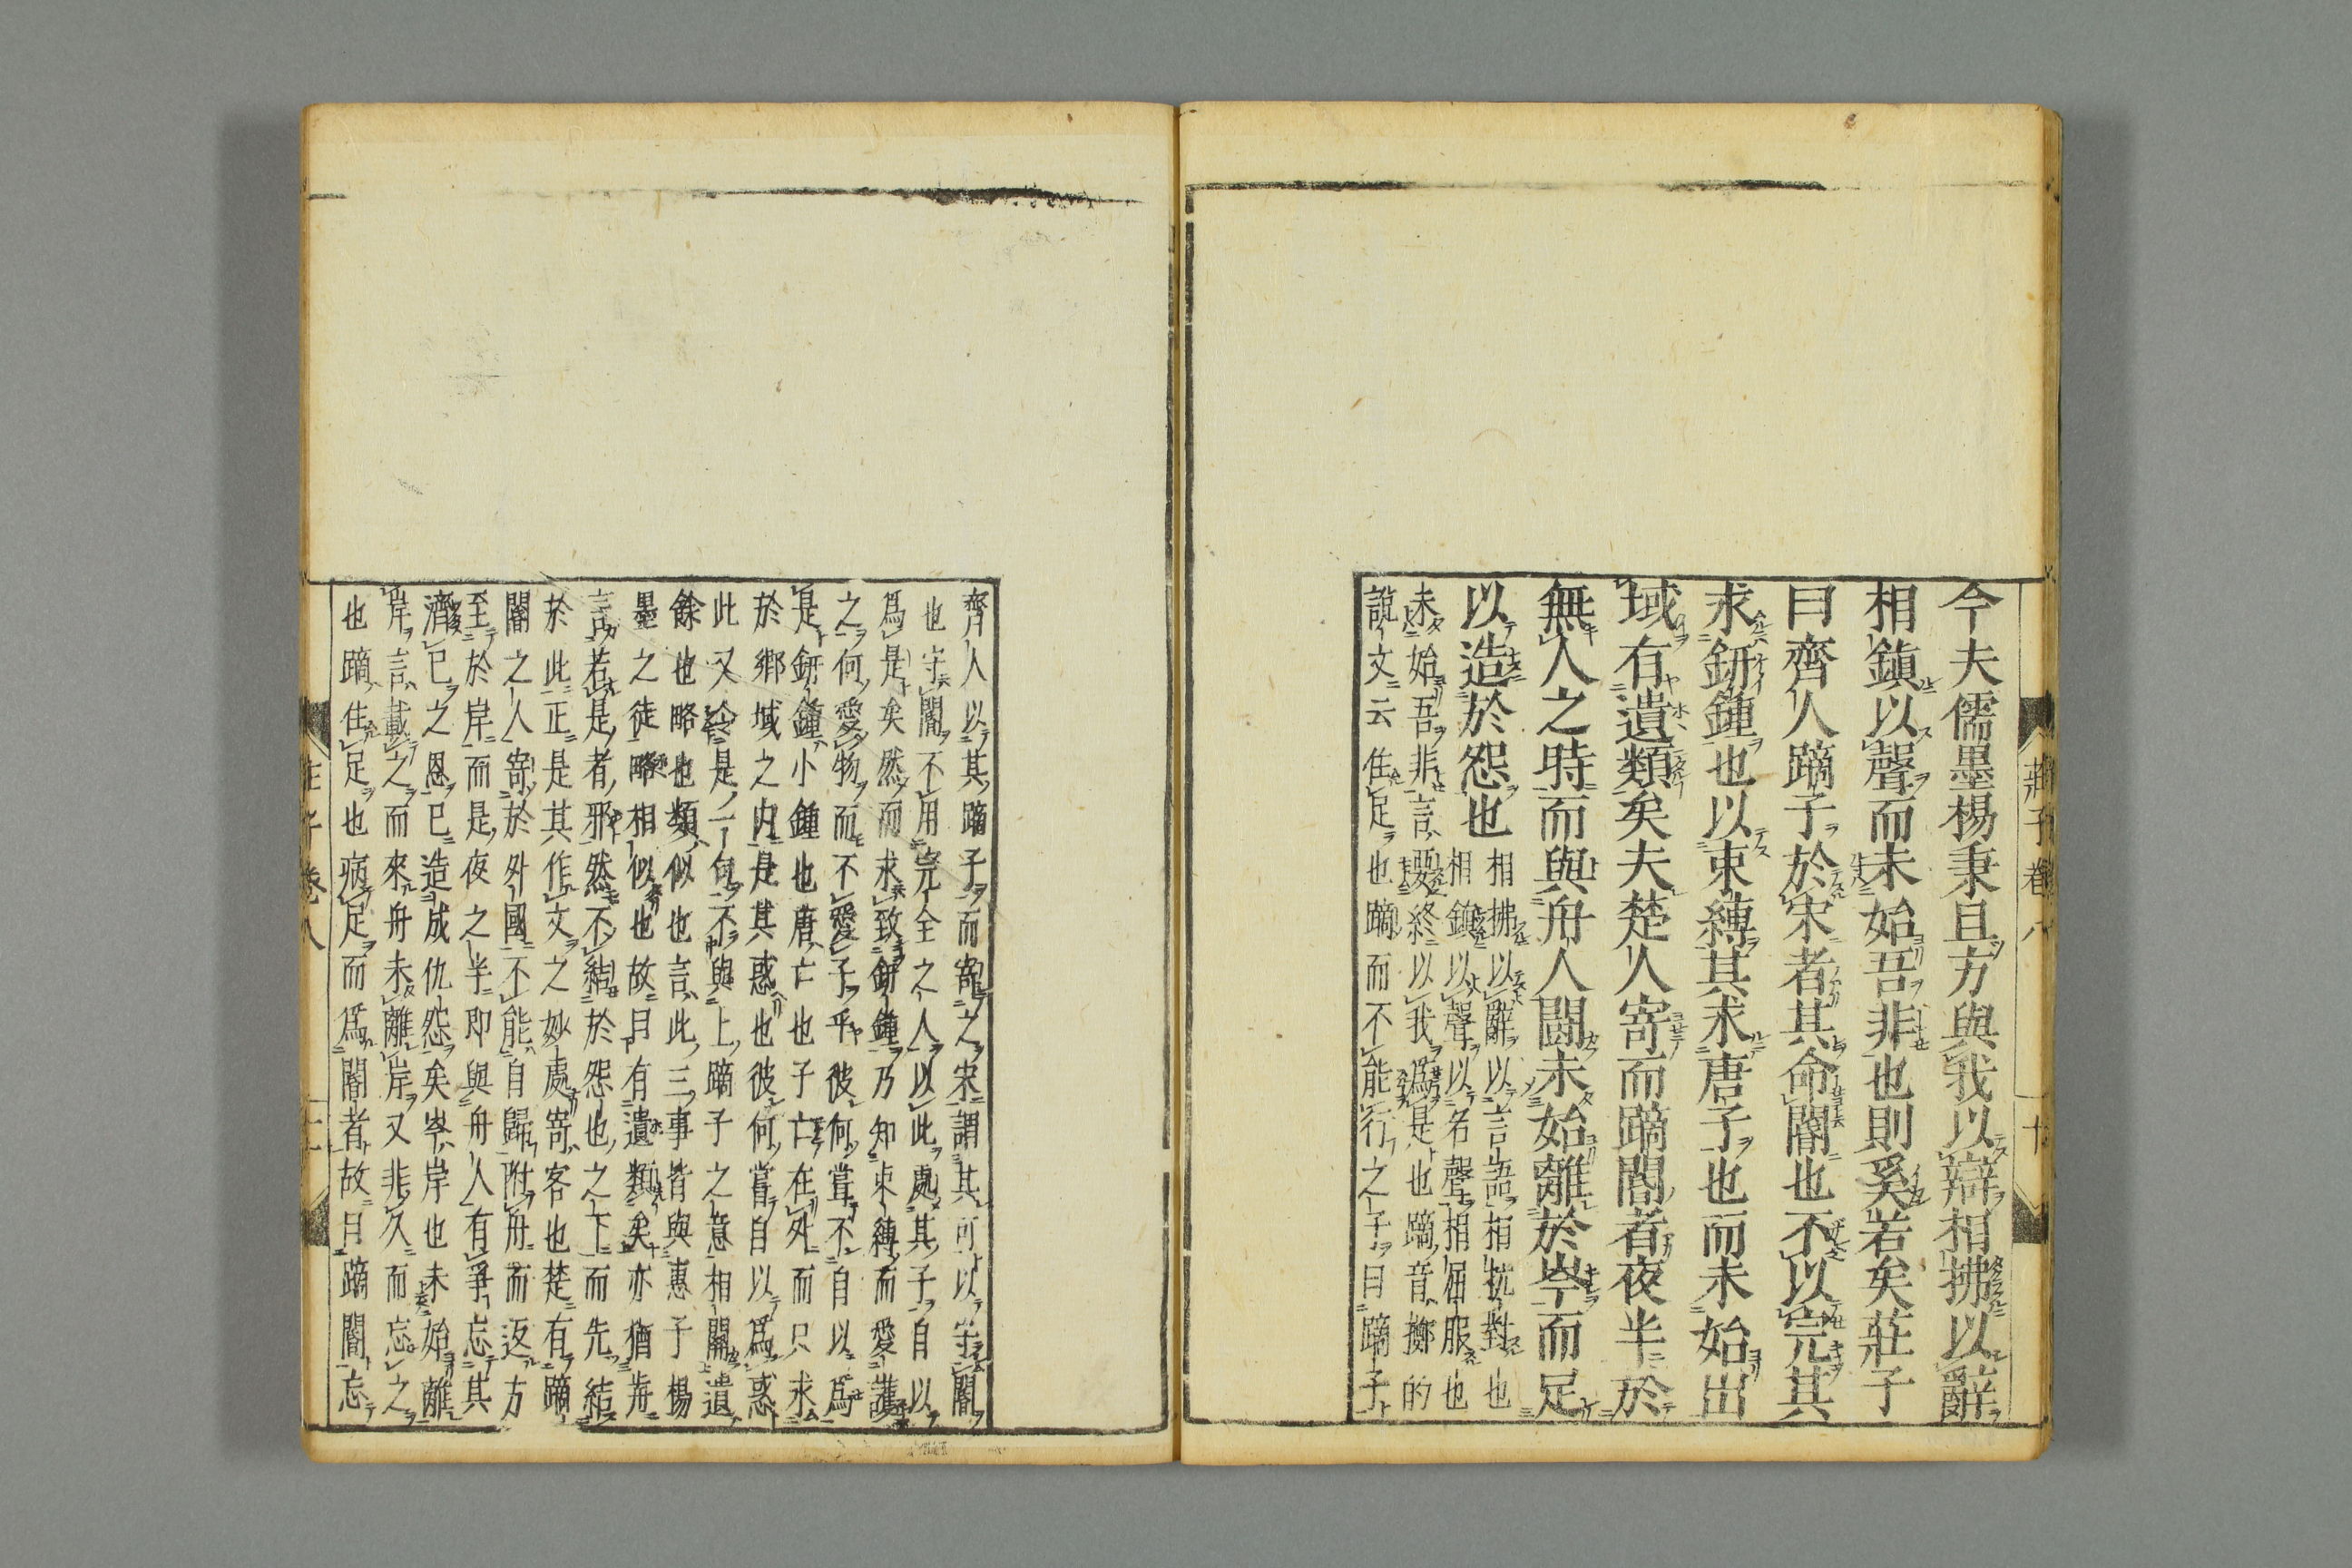 今夫儒墨楊秉且方與我以辯相拂以辭
相鎮以聲而未始吾非也則奚若矣莊子
曰齊人蹢子於宋者其命閽也不以完其
求鈃鍾也以束縛其求唐子也而未始出
域有遺類矣夫楚人寄而蹢閽者夜半於
無人之時而與舟人鬪未始離於岑而足
以造於怨也
相拂以辭以言語相抗對也
相鎮以聲以名聲相屈服也
未始吾非言要終以我爲是也蹢音擲的
說文云住足也蹢而不能行之子曰蹢子
莊子卷八
齊人以其蹢子而寄之宋謂其可以守閽
也守閽不用完全之人以此處其子自以
爲是矣然而求致鈃鍾乃知束縛而愛護
之何愛物而不愛子乎彼何嘗不自以爲
是鈃鍾小鍾也唐亡也子亡在外而只求
於鄉域之內是其惑也彼何嘗自以爲惑
此又今是一句不與上蹢子之意相關遺
餘也略也類似也言此三事皆與惠子楊
墨之徒略相似也故曰有遺類矣亦猶前
言若是者邪然不結於怨也之下而先結
於此正是其作文之妙處寄客也楚有蹢
閽之人寄於外國不能自歸附舟而返方
至於岸而是夜之半即與舟人有爭忘其
濟已之恩已造成仇怨矣岑岸也未始離
岸言載之而來舟未離岸又非久而忘之
也蹢住足也病足而爲閽者故曰蹢閽忘
莊子卷八